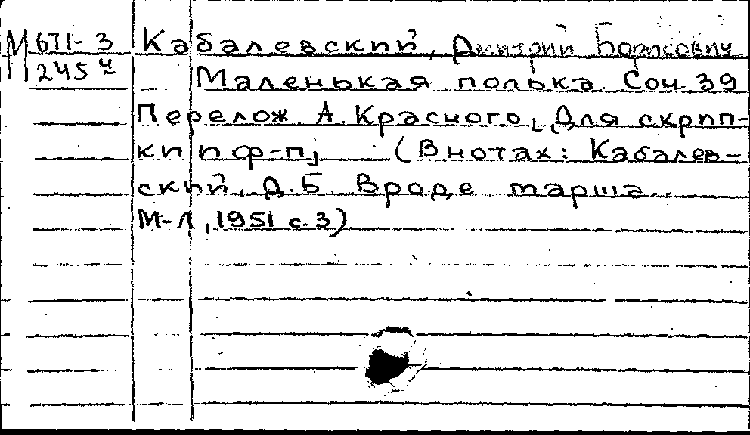 М 671-3 Кабалевский, Дмитрий Борисович
245 ч Маленькая полька Соч. 39
Перелож. А. Красного, [Для скрип-
ки и ф-п] (В нотах: Кабалев-
ский, Д.Б. Вроде марша
М-Л, 1951 с. 3)